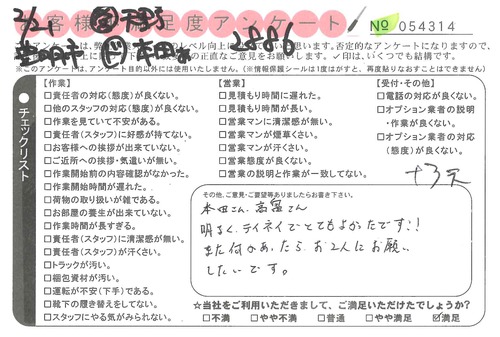 お客様満足度アンケート
2/21
No 054314
2886
このアンケートは、弊
レベル向上
思います。否定的なアンケートになりますので、
正直なご意見をお願いします。✓印は、いくつでも結構です。
※このアンケートは、アンケート目的以外には使用いたしません。(※情報保護シールは1度がすと、再度貼りなおすことはできません)
チェックリスト
【作業】
□責任者の対応(態度)が良くない。
□他のスタッフの対応(態度)が良くない。
□作業を見ていて不安がある。
□責任者(スタッフ)に好感が持てない。
□お客様への挨拶が出来ていない。
□ご近所への挨拶・気遣いが無い。
□作業開始前の内容確認がなかった。
□作業開始時間が遅れた。
□荷物の取り扱いが雑である。
□お部屋の養生が出来ていない。
□作業時間が長すぎる。
□責任者(スタッフ)に清潔感が無い。
□責任者(スタッフ)が汗くさい。
□トラックが汚い。
□梱包資材が汚い。
□運転が不安(下手)である。
□靴下の履き替えをしてない。
□スタッフにやる気がみられない。
【営業】
□見積もり時間に遅れた。
□見積もり時間が長い。
□営業マンに清潔感が無い。
□営業マンが煙草くさい。
□営業マンが汗くさい。
□営業態度が良くない。
□営業の説明と作業が一致してない。
【受付・その他】
□電話の対応が良くない。
□オプション業者の説明
・作業が良くない。
□オプション業者の対応
(態度)が良くない。
その他、ご意見・ご要望等ありましたらお書き下さい。
本田さん、高富さん
明るく、テイネイでとてもよかたです!!
また何かあったら、お2人にお願い
したいです。
☆当社をご利用いただきまして、ご満足いただけたでしょうか?
□不満 □やや不満 □普通 □やや満足 ☑満足